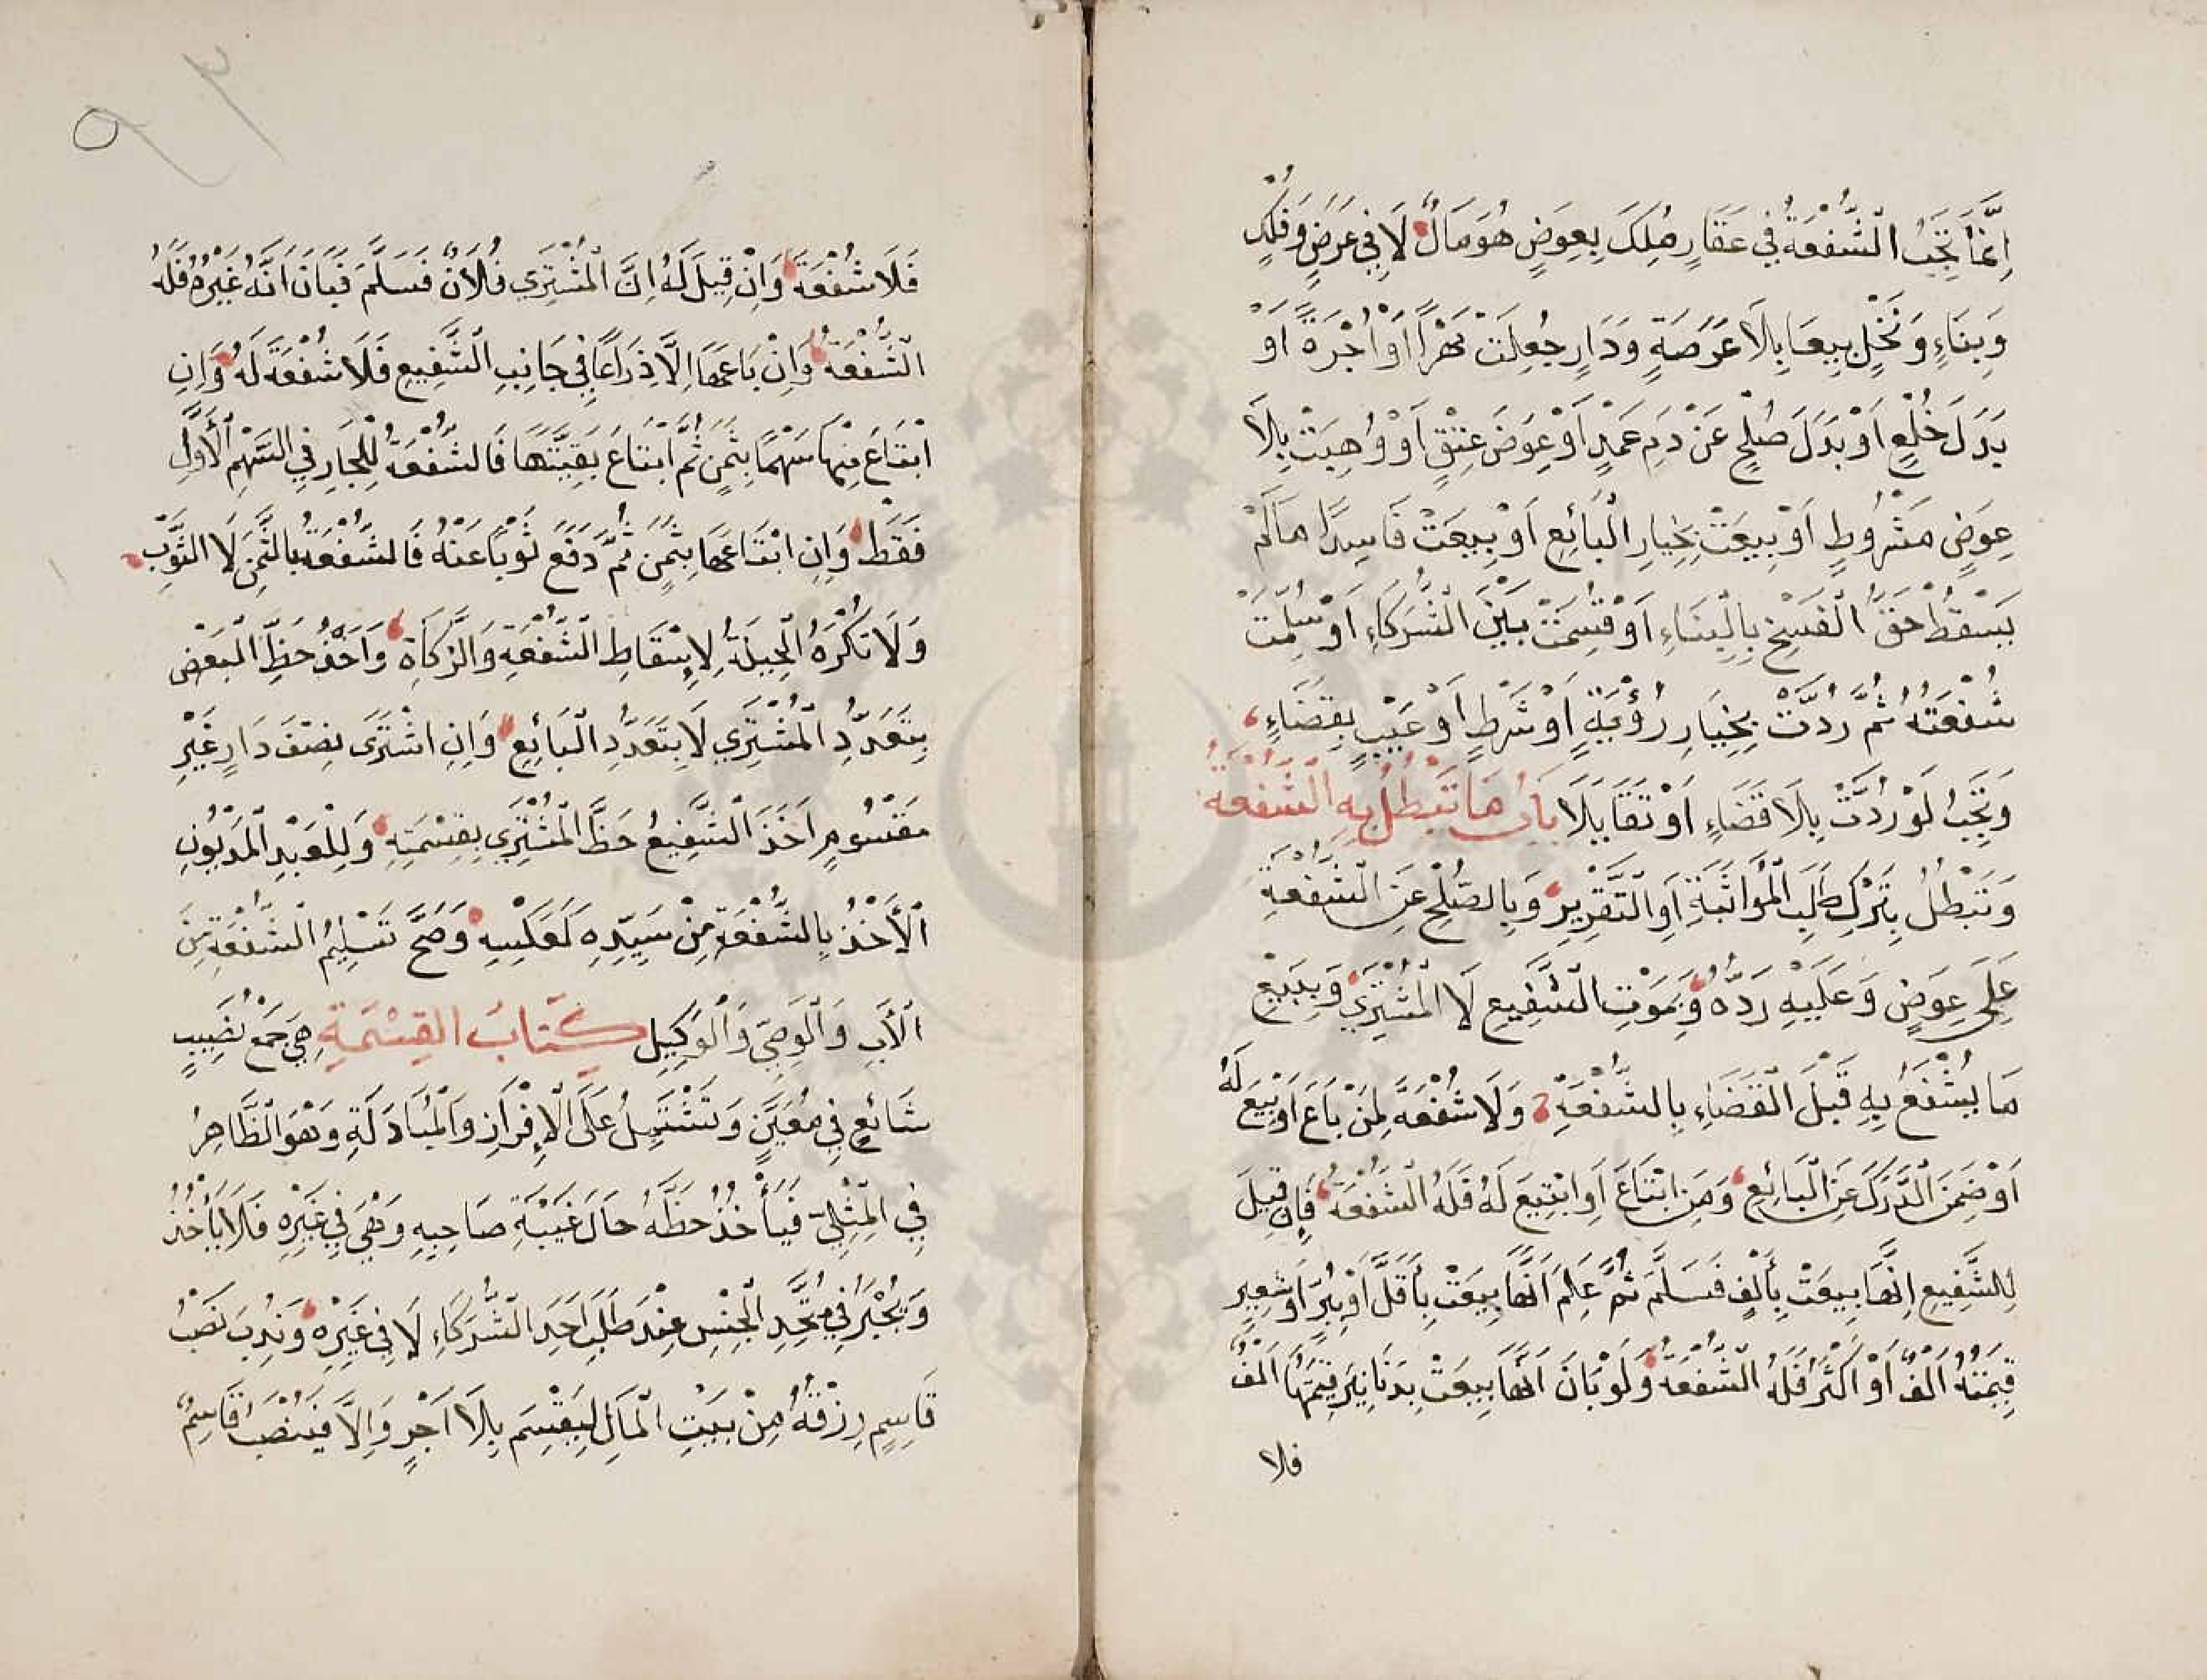 اِنَّمَا تَجِبُ الشُّفْعَةُ فِي عَقَارٍ مُلِكَ بِعِوَضٍ هُوَ مَالٌ لَا فِي عَرَضٍ وَفُلْكٍ
وَبِنَاءٍ وَنَخْلٍ بِيعَا بِلَا عَرَصَةٍ وَدَارٍ جُعِلَتْ مَهْرًا اَوْ اُجْرَةً اَوْ
بَدَلَ خُلْعٍ اَوْ بَدَلَ صُلْحٍ عَنْ دَمِ عَمْدٍ اَوْ عِوَضَ عِتْقٍ اَوْ وُهِبَتْ بِلَا
عِوَضٍ مَشْرُوطٍ اَوْ بِيعَتْ بِخِيَارِ الْبَائِعِ اَوْ بِيعَتْ فَاسِدًا مَا لَمْ
يَسْقُطْ حَقُّ الْفَسْخِ بِالْبِنَاءِ اَوْ قُسِمَتْ بَيْنَ الشُّرَكَاءِ اَوْ سُلِّمَتْ
شُفْعَتُهُ ثُمَّ رُدَّتْ بِخِيَارِ رُؤْيَةٍ اَوْ شَرْطٍ اَوْ عَيْبٍ بِقَضَاءٍ
وَتَجِبُ لَوْ رُدَّتْ بِلَا قَضَاءٍ اَوْ تَقَايَلَا بَابُ مَا تَبْطُلُ بِهِ الشُّفْعَةُ
وَتَبْطُلُ بِتَرْكِ طَلَبِ الْمُوَاثَبَةِ اَوِ التَّقْرِيرِ وَبِالصُّلْحِ عَنِ الشُّفْعَةِ
عَلَى عِوَضٍ وَعَلَيْهِ رَدُّهُ وَبِمَوْتِ الشَّفِيعِ لَا الْمُشْتَرِي وَبِبَيْعِ
مَا يُشْفَعُ بِهِ قَبْلَ الْقَضَاءِ بِالشُّفْعَةِ وَلَا شُفْعَةَ لِمَنْ بَاعَ اَوْ بِيعَ لَهُ
اَوْ ضَمِنَ الدَّرَكَ عَنِ الْبَائِعِ وَمَنِ ابْتَاعَ اَوِ ابْتِيعَ لَهُ فَلَهُ الشُّفْعَةُ فَاِنْ قِيلَ
لِلشَّفِيعِ اِنَّهَا بِيعَتْ بِأَلْفٍ فَسَلَّمَ ثُمَّ عَلِمَ اَنَّهَا بِيعَتْ بِأَقَلَّ اَوْ بِبُرٍّ اَوْ شَعِيرٍ
قِيمَتُهُ اَلْفٌ اَوْ اَكْثَرُ فَلَهُ الشُّفْعَةُ وَلَوْ بَانَ اَنَّهَا بِيعَتْ بِدَنَانِيرَ قِيمَتُهَا اَلْفٌ
فلا
٩٣
فَلَا شُفْعَةَ وَاِنْ قِيلَ لَهُ اِنَّ الْمُشْتَرِي فُلَانٌ فَسَلَّمَ فَبَانَ اَنَّهُ غَيْرُهُ فَلَهُ
الشُّفْعَةُ وَاِنْ بَاعَهَا اِلَّا ذِرَاعًا فِي جَانِبِ الشَّفِيعِ فَلَا شُفْعَةَ لَهُ وَاِنِ
ابْتَاعَ مِنْهَا سَهْمًا بِثَمَنٍ ثُمَّ ابْتَاعَ بَقِيَّتَهَا فَالشُّفْعَةُ لِلْجَارِ فِي السَّهْمِ الْأَوَّلِ
فَقَطْ وَاِنِ ابْتَاعَهَا بِثَمَنٍ ثُمَّ دَفَعَ ثَوْبًا عَنْهُ فَالشُّفْعَةُ بِالثَّمَنِ لَا الثَّوْبِ
وَلَا تُكْرَهُ الْحِيلَةُ لِإِسْقَاطِ الشُّفْعَةِ وَالزَّكَاةِ وَاَخْذُ حَظِّ الْبَعْضِ
بِتَعَدُّدِ الْمُشْتَرِي لَا بِتَعَدُّدِ الْبَائِعِ وَاِنِ اشْتَرَى نِصْفَ دَارٍ غَيْرِ
مَقْسُومٍ اَخَذَ الشَّفِيعُ حَظَّ الْمُشْتَرِي بِقِسْمَتِهِ وَلِلْعَبْدِ الْمَدْيُونِ
الْأَخْذُ بِالشُّفْعَةِ مِنْ سَيِّدِهِ كَعَكْسِهِ وَصَحَّ تَسْلِيمُ الشُّفْعَةِ مِنَ
الْأَبِ وَالْوَصِيِّ وَالْوَكِيلِ كِتَابُ الْقِسْمَةِ هِيَ جَمْعُ نَصِيبٍ
شَائِعٍ فِي مُعَيَّنٍ وَتَشْتَمِلُ عَلَى الْإِفْرَازِ وَالْمُبَادَلَةِ وَهُوَ الظَّاهِرُ
فِي الْمِثْلِيِّ فَيَأْخُذُ حَظَّهُ حَالَ غَيْبَةِ صَاحِبِهِ وَهِيَ فِي غَيْرِهِ فَلَا يَأْخُذُ
وَيُجْبَرُ فِي مُتَّحِدِ الْجِنْسِ عِنْدَ طَلَبِ اَحَدِ الشُّرَكَاءِ لَا فِي غَيْرِهِ وَنُدِبَ نَصْبُ
قَاسِمٍ رِزْقُهُ مِنْ بَيْتِ الْمَالِ لِيَقْسِمَ بِلَا اَجْرٍ وَاِلَّا فَيُنْصَبُ قَاسِمٌ